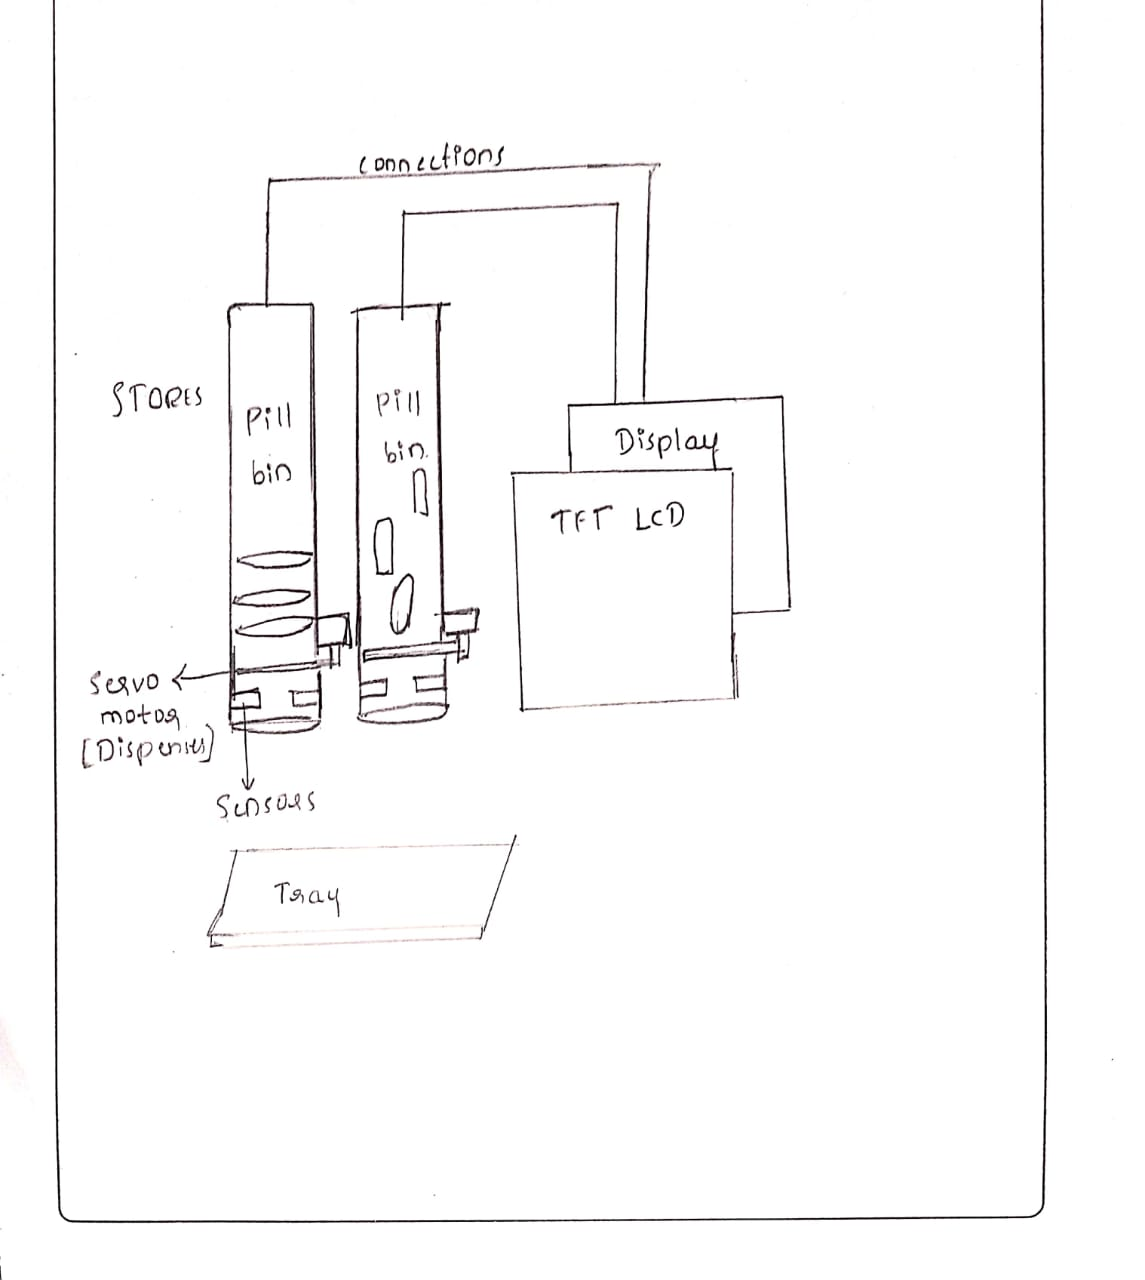 connections
STORES
Pill
bin
Pill
bin.
Display
TFT LCD
Servo
motor
[Dispenses]
Sensors
Tray